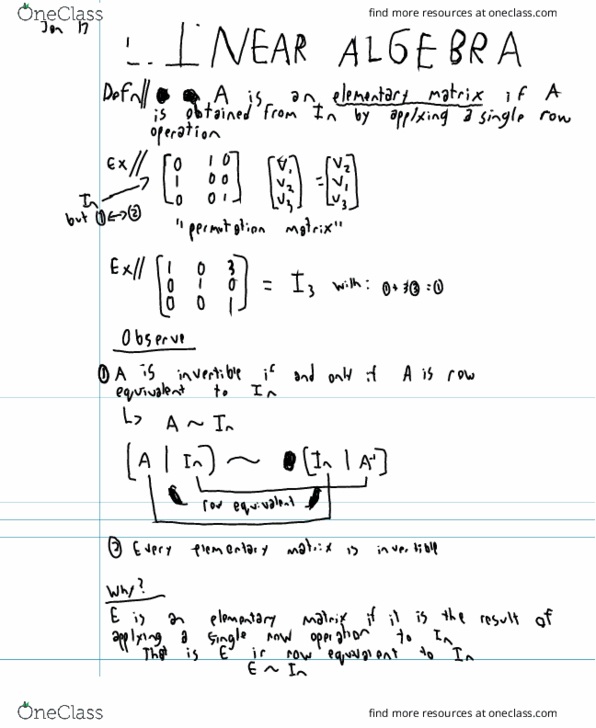 OneClass
find more resources at oneclass.com
Jan 17
LINEAR ALGEBRA
Defn// A is an elementary matrix if A
is obtained from In by applying a single row
operation
Ex// [0 1 0 [V1 [V2
1 0 0 V2 = V1
0 0 1] V3] V3]
In
but ①↔②
"permutation matrix"
Ex// [1 0 3
0 1 0 = I3 with: ①+3③=①
0 0 1]
Observe
① A is invertible if and only if A is row
equivalent to In
↳ A ~ In
[A | In] ~ [In | A⁻¹]
row equivalent
② Every elementary matrix is invertible
Why?
E is an elementary matrix if it is the result of
applying a single row operation to In
That is E is row equivalent to In
E ~ In
OneClass
find more resources at oneclass.com